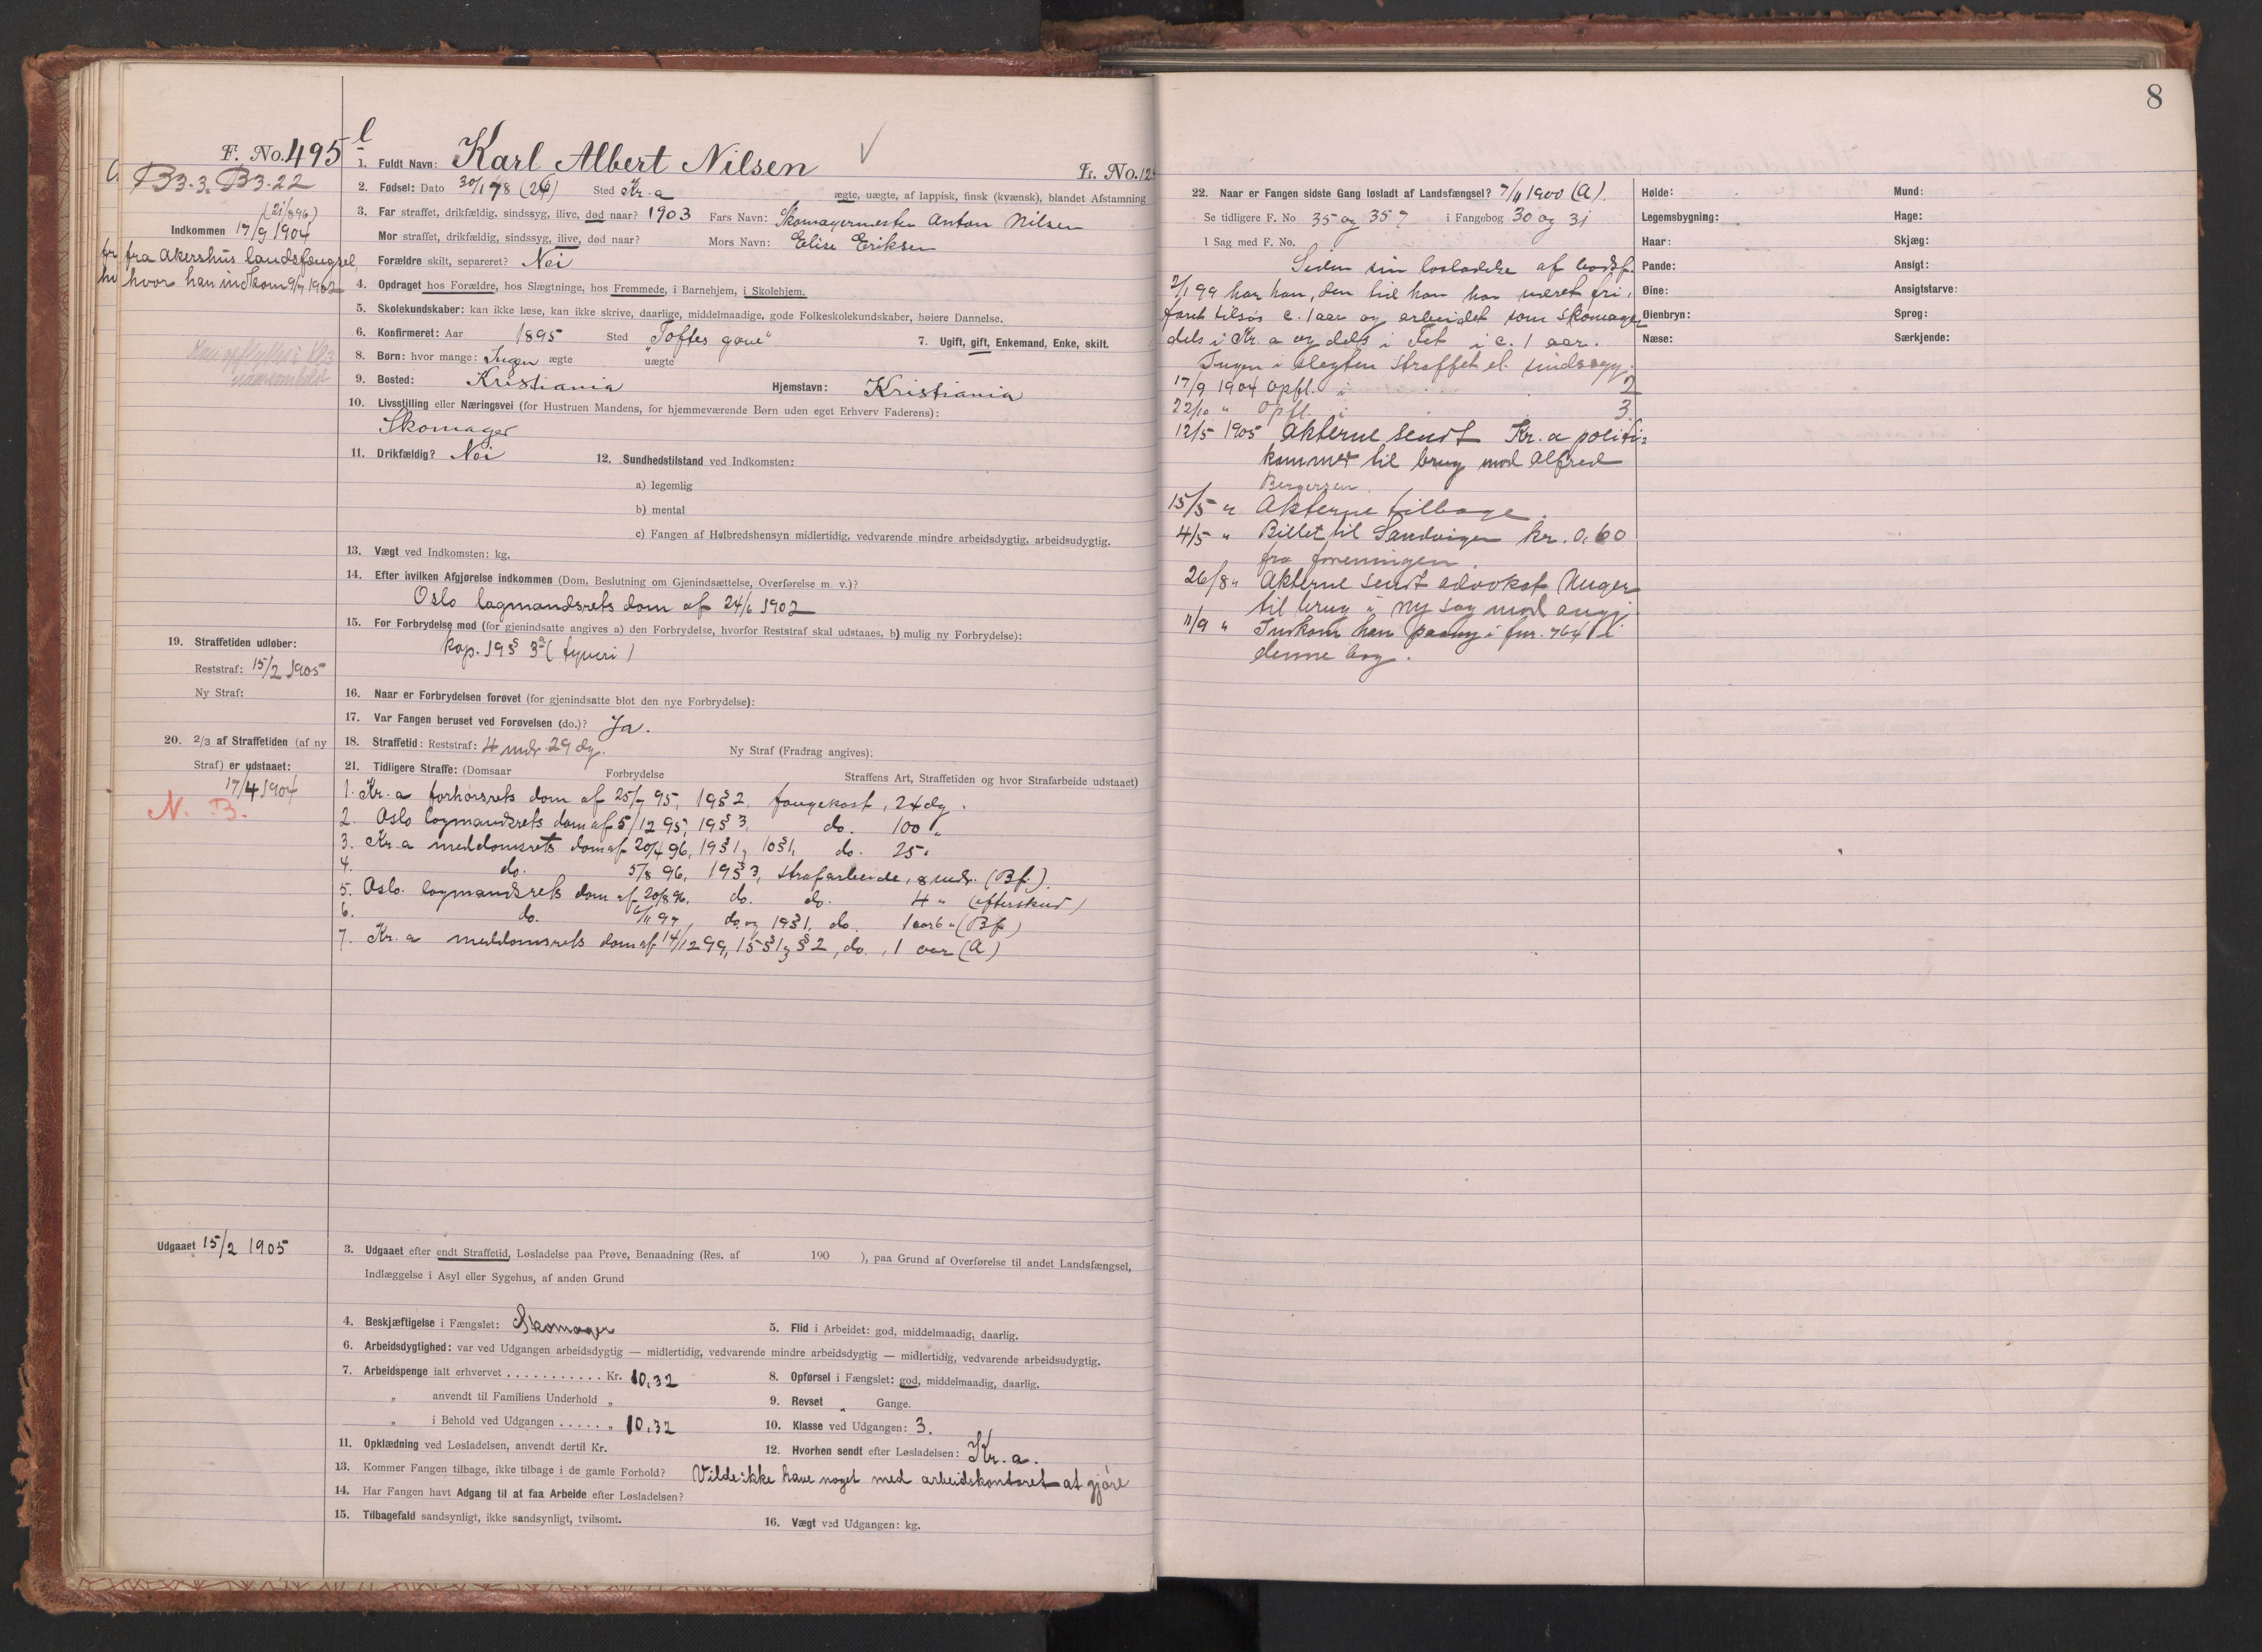 F. No. 495 l
B3.3. B3.22
(21/896)
Indkommen 17/9 1904
fra Akershus landsfængsel,
hvor han indkom 9/7 1902
19. Straffetiden udløber:
Reststraf: 15/2 1905
Ny Straf:
20. 2/3 af Straffetiden (af ny
Straf) er udstaaet:
17/4 1904
N. B.
Udgaaet 15/2 1905
1. Fuldt Navn: Karl Albert Nilsen
Fr. No. 12
2. Fødsel: Dato 30/1 78 (26) Sted Kr.a ægte, uægte, af lappisk, finsk (kvænsk), blandet Afstamning
3. Far straffet, drikfældig, sindssyg, ilive, død naar? 1903 Fars Navn: Skomagermester Anton Nilsen
Mor straffet, drikfældig, sindssyg, ilive, død naar? Mors Navn: Elise Eriksen
Forældre skilt, separeret? Nei
4. Opdraget hos Forældre, hos Slægtninge, hos Fremmede, i Barnehjem, i Skolehjem.
5. Skolekundskaber: kan ikke læse, kan ikke skrive, daarlige, middelmaadige, gode Folkeskolekundskaber, høiere Dannelse.
6. Konfirmeret: Aar 1895 Sted "Toftes gave" 7. Ugift, gift, Enkemand, Enke, skilt.
8. Børn: hvor mange: Ingen ægte uægte
9. Bosted: Kristiania Hjemstavn: Kristiania
10. Livsstilling eller Næringsvei (for Hustruen Mandens, for hjemmeværende Børn uden eget Erhverv Faderens):
Skomager
11. Drikfældig? Nei 12. Sundhedstilstand ved Indkomsten:
a) legemlig
b) mental
c) Fangen af Helbredshensyn midlertidig, vedvarende mindre arbeidsdygtig, arbeidsudygtig.
13. Vægt ved Indkomsten: kg.
14. Efter hvilken Afgjørelse indkommen (Dom, Beslutning om Gjenindsættelse, Overførelse m. v.)?
Oslo lagmandsrets dom af 24/6 1902
15. For Forbrydelse mod (for gjenindsatte angives a) den Forbrydelse, hvorfor Reststraf skal udstaaes, b) mulig ny Forbrydelse):
kap. 19 § 3 a (tyveri)
16. Naar er Forbrydelsen forøvet (for gjenindsatte blot den nye Forbrydelse):
17. Var Fangen beruset ved Forøvelsen (do.)? Ja.
18. Straffetid: Reststraf: 4 mdr. 29 dg. Ny Straf (Fradrag angives):
21. Tidligere Straffe: (Domsaar Forbrydelse Straffens Art, Straffetiden og hvor Strafarbeide udstaaet)
1. Kr.a forhørsrets dom af 25/7 95, 19 § 2, fangekost, 24 dg.
2. Oslo lagmandsrets dom af 5/12 95, 19 § 3, do. 100 "
3. Kr.a meddomsrets dom af 20/4 96, 19 § 1, 10 § 1, do. 25 "
4. do. 5/8 96, 19 § 3, strafarbeide, 8 mdr. (Bf.)
5. Oslo lagmandsrets dom af 20/8 96. do. do. 4 " (efterskud)
6. do. 6/11 97, do. og 19 § 1, do. 1 aar 6 " (Bf.)
7. Kr.a meddomsrets dom af 14/12 99, 15 § 1, § 2, do., 1 aar (A)
3. Udgaaet efter endt Straffetid, Løsladelse paa Prøve, Benaadning (Res. af 190 ), paa Grund af Overførelse til andet Landsfængsel,
Indlæggelse i Asyl eller Sygehus, af anden Grund
4. Beskjæftigelse i Fængslet: Skomager 5. Flid i Arbeidet: god, middelmaadig, daarlig.
6. Arbeidsdygtighed: var ved Udgangen arbeidsdygtig — midlertidig, vedvarende mindre arbeidsdygtig — midlertidig, vedvarende arbeidsudygtig.
7. Arbeidspenge ialt erhvervet . . . . . . . . . . . Kr. 10,32 8. Opførsel i Fængslet: god, middelmaadig, daarlig.
" anvendt til Familiens Underhold " 9. Revset " Gange.
" i Behold ved Udgangen . . . . . " 10,32 10. Klasse ved Udgangen: 3.
11. Opklædning ved Løsladelsen, anvendt dertil Kr. 12. Hvorhen sendt efter Løsladelsen: Kr.a.
13. Kommer Fangen tilbage, ikke tilbage i de gamle Forhold? Vilde ikke have noget med arbeidskontoret at gjøre
14. Har Fangen havt Adgang til at faa Arbeide efter Løsladelsen?
15. Tilbagefald sandsynligt, ikke sandsynligt, tvilsomt. 16. Vægt ved Udgangen: kg.
8
22. Naar er Fangen sidste Gang løsladt af Landsfængsel? 7/11 1900 (A).
Se tidligere F. No 35 og 357 i Fangebog 30 og 31
I Sag med F. No.
Siden sin løsladelse af bodsf.
2/1 99 har han, den tid han har været fri,
faret tilsjøs c. 1 aar og arbeidet som skomager
dels i Kr.a og dels i Fet i c. 1 aar.
Ingen i slegten straffet el. sindssyg.
17/9 1904 Opfl. i 2
22/10 " Opfl. i 3.
12/5 1905 Akterne sendt Kr.a politi-
kammer til brug mod Alfred
Bergersen.
15/5 " Akterne tilbage.
4/5 " Billet til Sandvigen kr. 0,60
fra foreningen.
26/8 " Akterne sendt advokat Unger
til brug i ny sag mod angj.
11/9 " Indkom han paany i fnr. 764 l
denne bog.
Høide:
Legemsbygning:
Haar:
Pande:
Øine:
Øienbryn:
Næse:
Mund:
Hage:
Skjæg:
Ansigt:
Ansigtsfarve:
Sprog:
Særkjende: